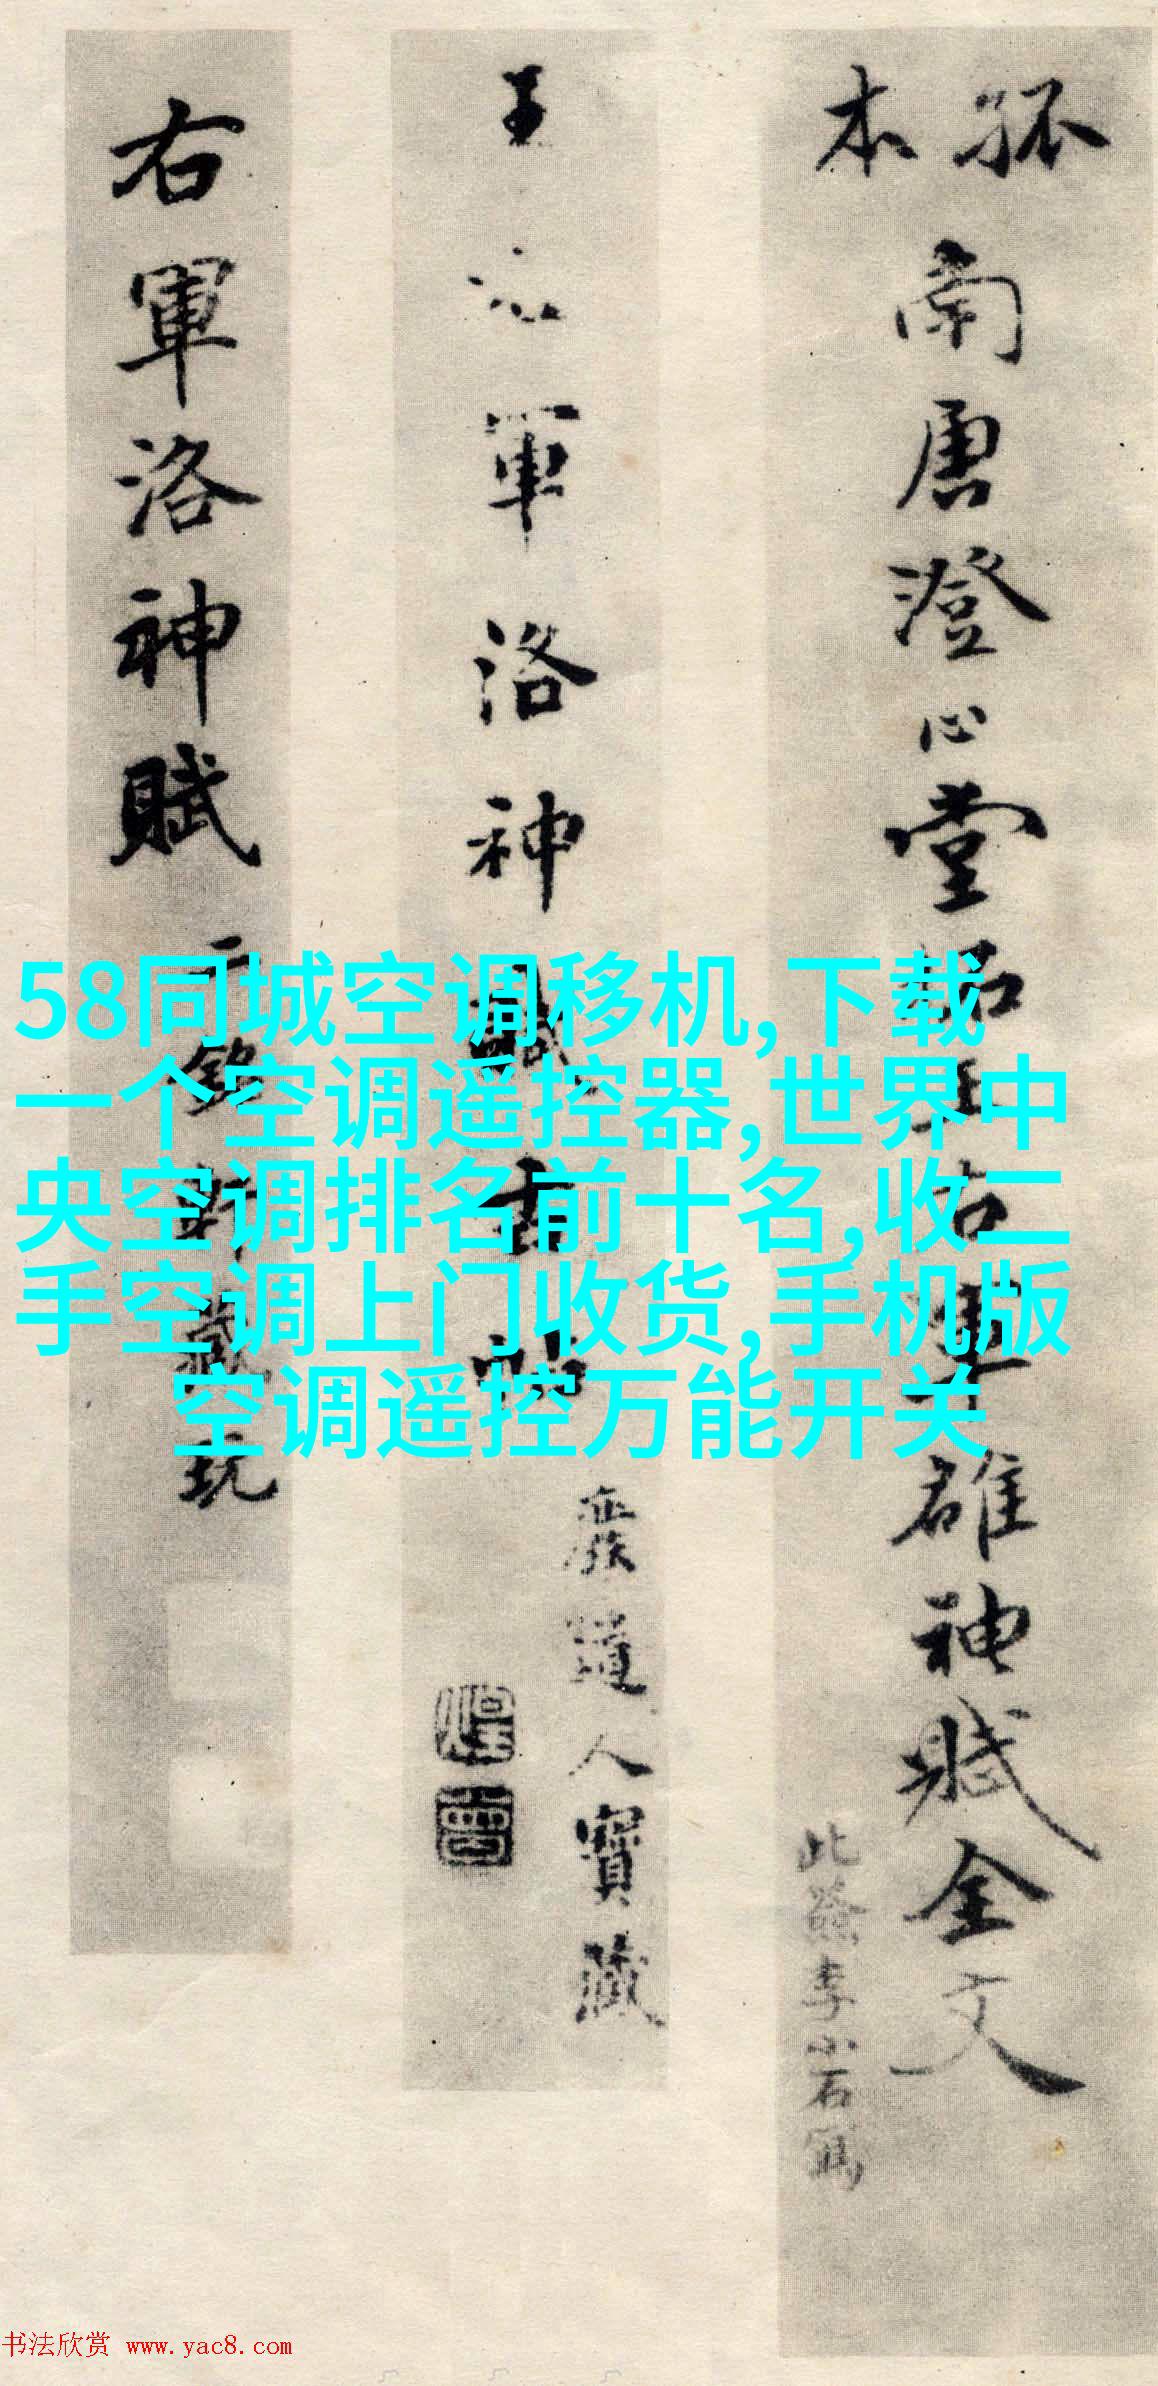 孤本
南唐澄心堂拓王右軍雒神賦全文
此簽李小石寫
王右軍洛神賦古帖
廢道人寶藏
右軍洛神賦
58同城空调移机,下载
一个空调遥控器,世界中
央空调排名前十名,收二
手空调上门收货,手机版
空调遥控万能开关
书法欣赏 www.yac8.com